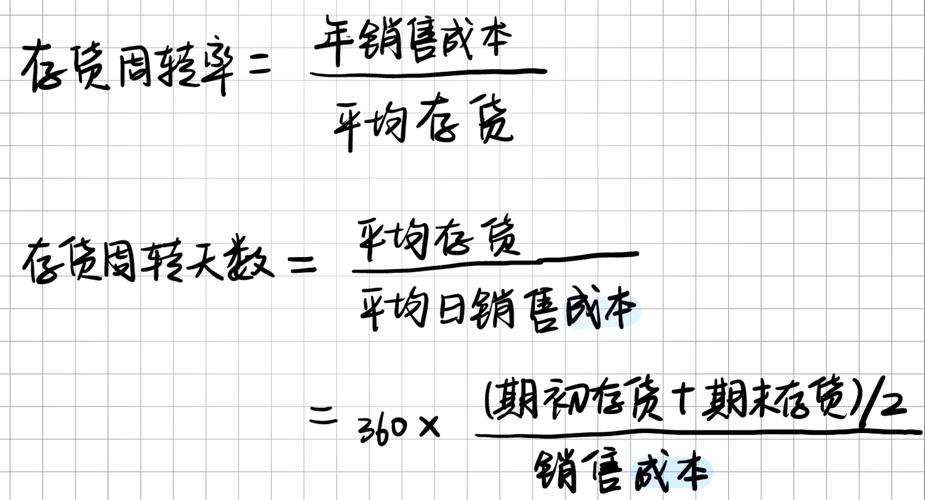 存货周转率 = 年销售成本 / 平均存货
存货周转天数 = 平均存货 / 平均日销售成本
= 360 × (期初存货 + 期末存货)/2 / 销售成本